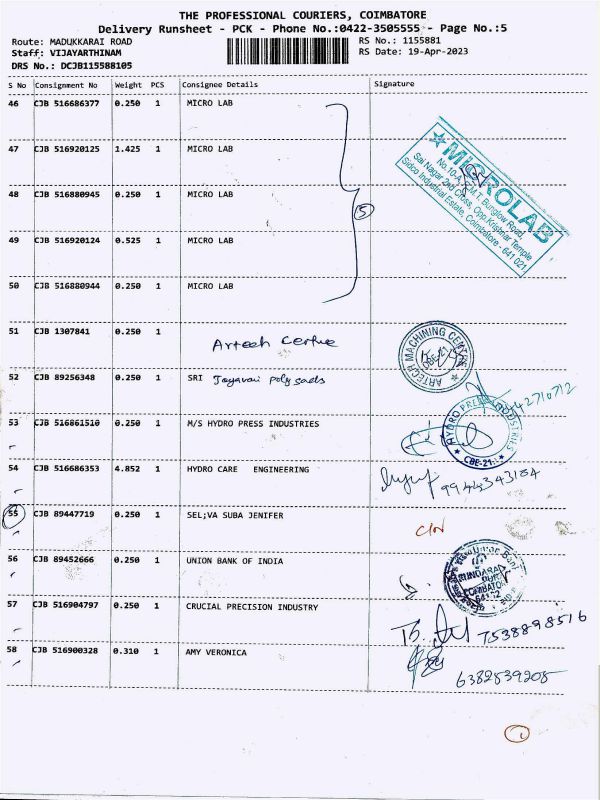 THE PROFESSIONAL COURIERS, COIMBATORE
Delivery Runsheet - PCK - Phone No.:0422-3505555 - Page No.:5
Route: MADUKKARAI ROAD
RS No.: 1155881
Staff: VIJAYARTHINAM
RS Date: 19-Apr-2023
DRS No.: DCJB115588105
S No Consignment No Weight PCS Consignee Details Signature
46 CJB 516686377 0.250 1 MICRO LAB
47 CJB 516920125 1.425 1 MICRO LAB
48 CJB 516880945 0.250 1 MICRO LAB
49 CJB 516920124 0.525 1 MICRO LAB
50 CJB 516880944 0.250 1 MICRO LAB
5
MICROLAB
Sai Nagar 2nd Cross, Opp. Krishnar Temple
Sidco Industrial Estate, Coimbatore - 641 021
51 CJB 1307841 0.250 1 Artech Centre
ARTECH MACHINING CENTRE
52 CJB 89256348 0.250 1 SRI
53 CJB 516861510 0.250 1 M/S HYDRO PRESS INDUSTRIES
HYDRO PRESS INDUSTRIES
CBE-21
54 CJB 516686353 4.852 1 HYDRO CARE ENGINEERING
9944343184
55 CJB 89447719 0.250 1 SEL;VA SUBA JENIFER
56 CJB 89452666 0.250 1 UNION BANK OF INDIA
57 CJB 516904797 0.250 1 CRUCIAL PRECISION INDUSTRY
7538898516
58 CJB 516900328 0.310 1 AMY VERONICA
6382539208
1